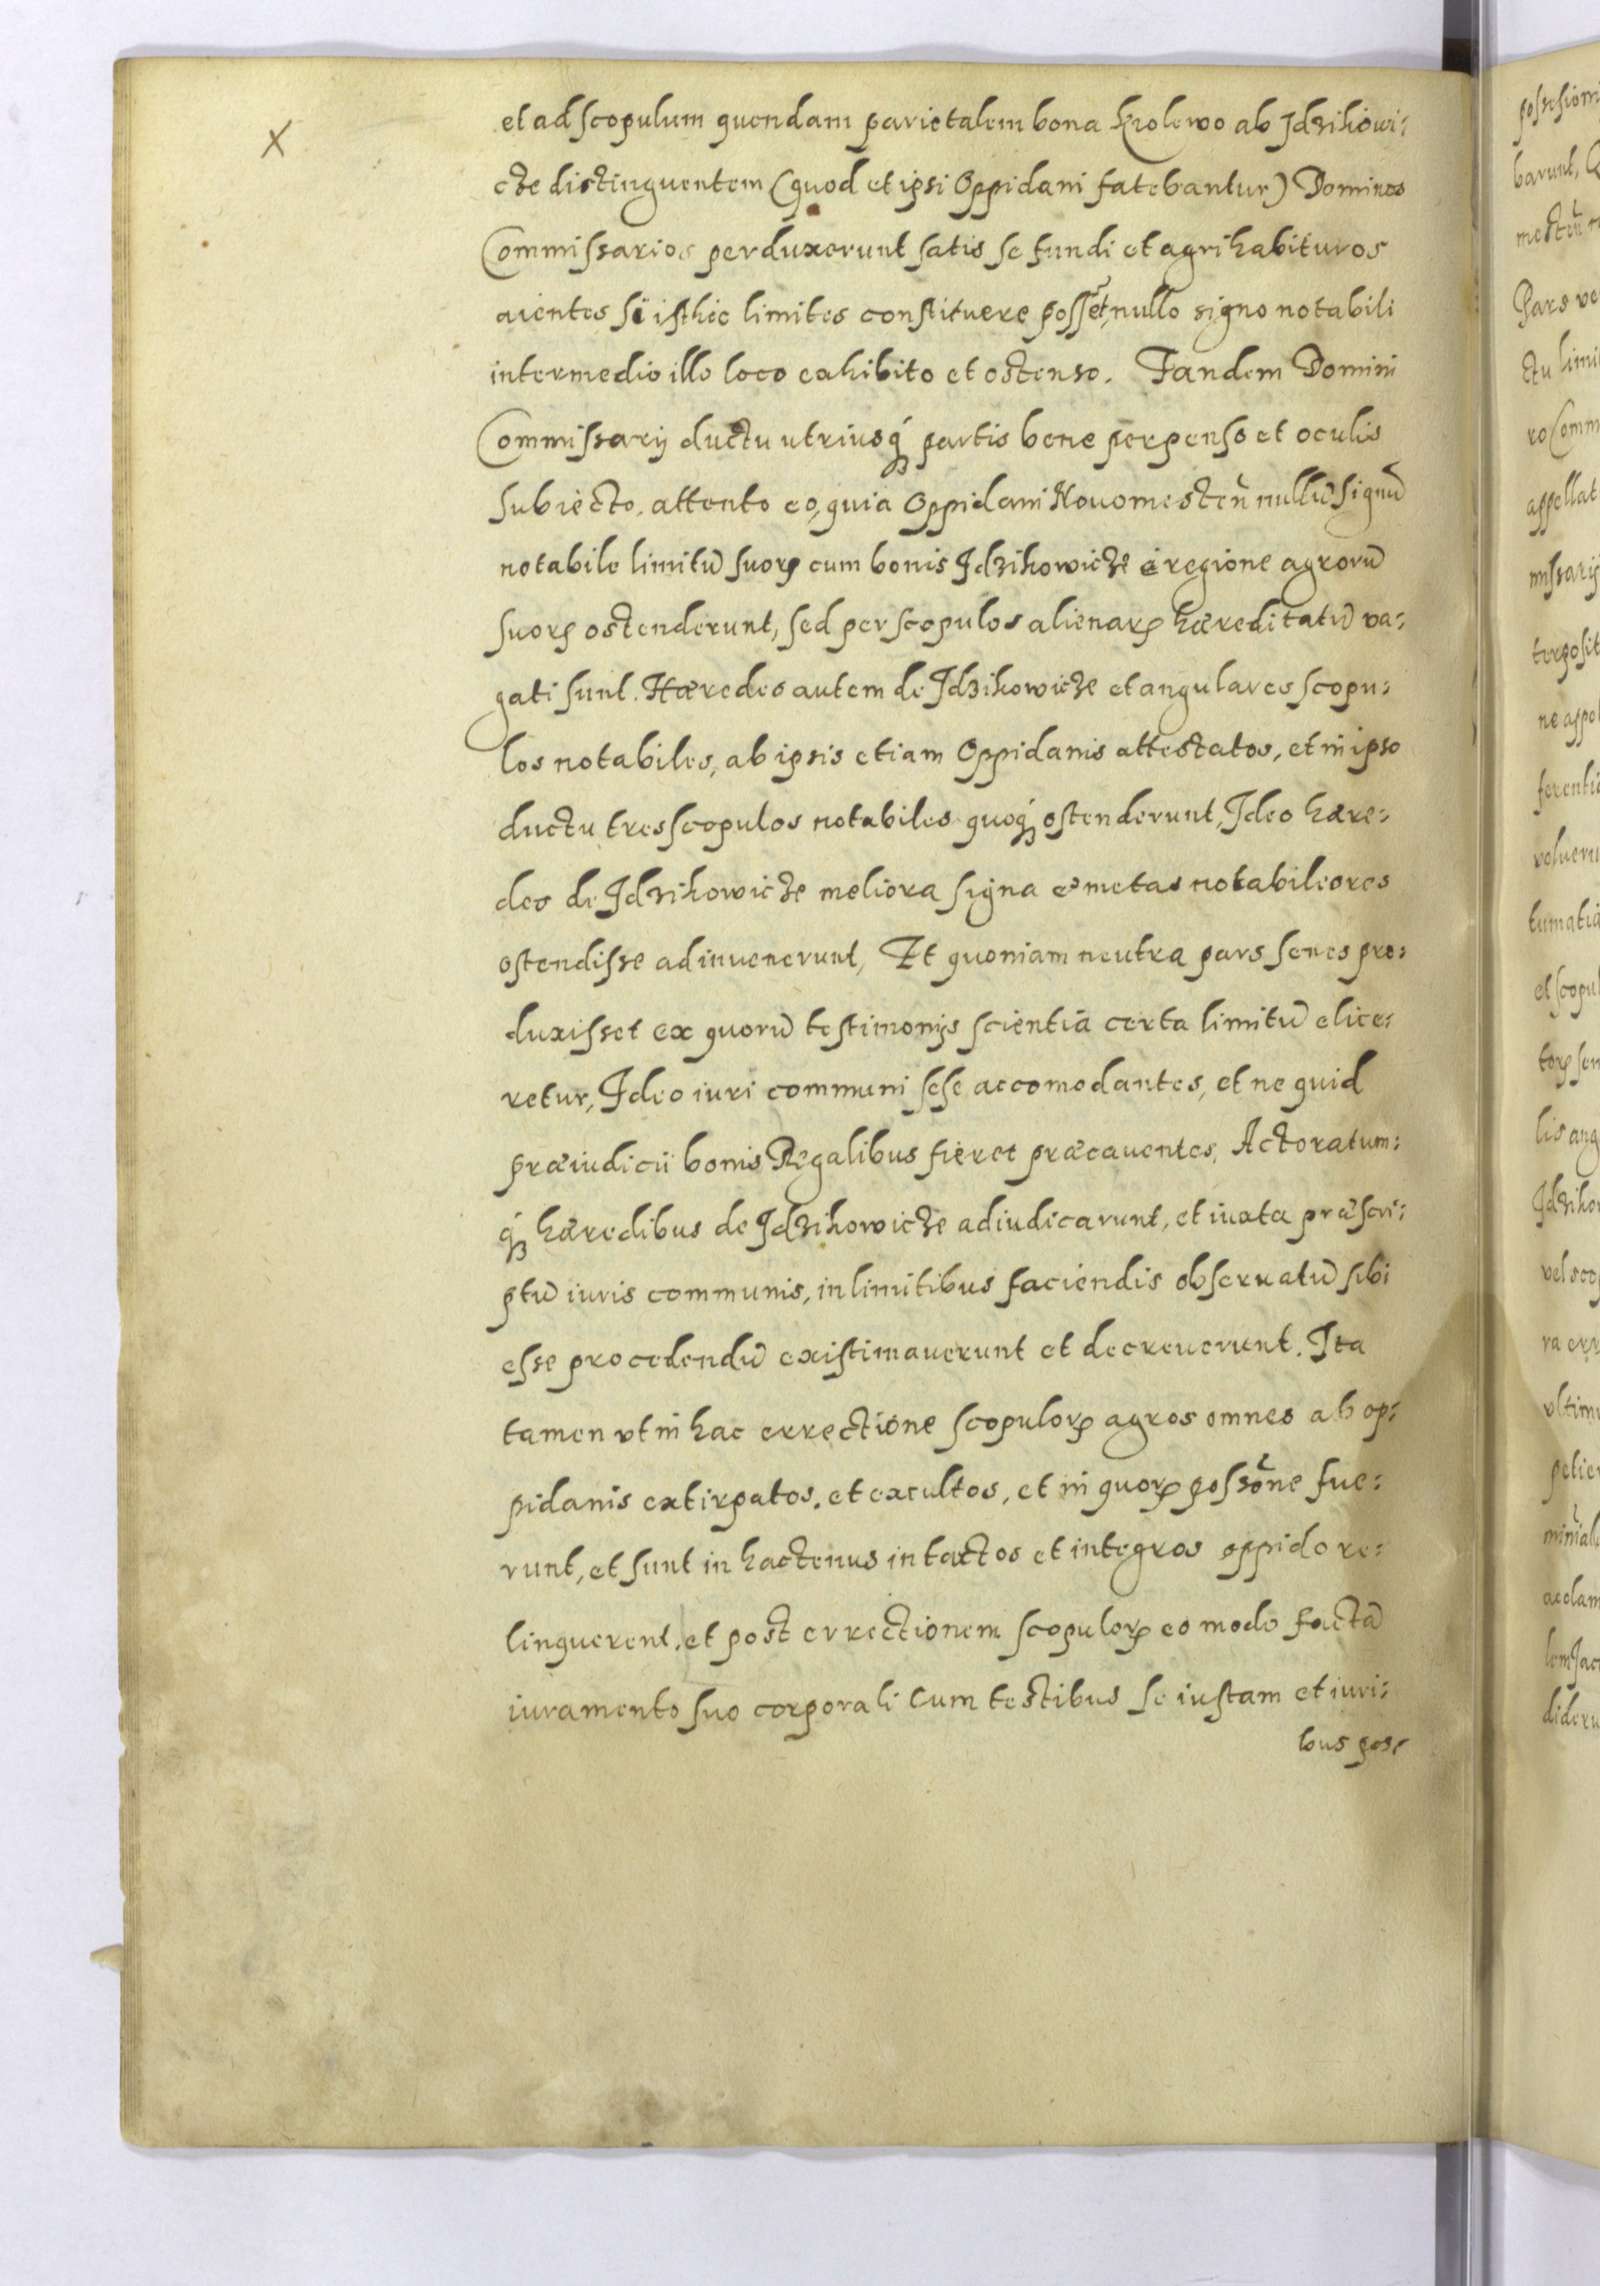 X
et ad scopulum quendam parietalem bona Krolewo ab Idzikowi:
cze distinguentem (quod et ipsi Oppidani fatebantur) Dominos
Commissarios perduxerunt satis se fundi et agri habituros
aientes si isthic limites constituere possēt, nullo signo notabili
intermedio illo loco exhibito et ostenso. Tandem Domini
Commissarij ductu utriusq́ partis bene perpenso et oculis
subiecto, attento eo, quia Oppidani Nouomesteñ nullū signū
notabile limitū suorꝝ cum bonis Idzikowicze è regione agrorū
suorꝝ ostenderunt, sed per scopulos alienarꝝ hæreditatū va:
gati sunt. Hæredes autem de Idzikowicze et angulares scopu:
los notabiles, ab ipsis etiam Oppidanis attestatos, et in ipso
ductu tres scopulos notabiles quoq́ ostenderunt, Ideo hære:
des de Idzikowicze meliora signa et metas notabileores
ostendisse adinuenerunt, Et quoniam neutra pars senes pro:
duxisset ex quorū testimonijs scientiā certa limitū elice:
retur, Ideo iuri communi sese accomodantes, et ne quid
præiudicii bonis Regalibus fieret præcauentes, Actoratum:
q́ hæredibus de Idzikowicze adiudicarunt, et iuxta præscri:
ptū iuris communis, in limitibus faciendis obseruatū sibi
esse procedendū existimauerunt et decreuerunt. Ita
tamen vt in hac errectione scopulorꝝ agros omnes ab op:
pidanis extirpatos, et excultos, et in quorꝝ possōne fue:
runt, et sunt in hactenus intactos et integros oppido re:
linquerent, et post errectionem scopulorꝝ eo modo factā
iuramento suo corporali cum testibus se iustam et iuri:
bus pos:
possesioni
barunt,
Pars ve
ctu limi
ro Comm
appellat
missarij
terposit
ne appel
ferentia
voluerun
tumatia
et scopul
torꝝ sen
lis ang
Idzikow
vel scop
ra err
vltimu
petier
acclam
dideru